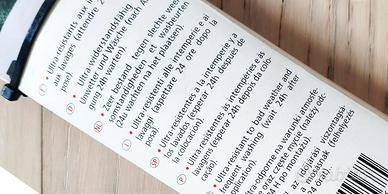 Ultra résistants aux in
aux lavages (attendre 2
pose)
D
Ultra widerstandsfähig
Unwetter und Wäsche (nach A
gung 24h warten).
NL
Zeer bestand tegen slechte wee
omstandigheden et wasbeurten
(24u wachten na het plaatsen).
I
Ultra resistenti alle intemperie e ai
lavaggi (aspettare 24 ore dopo la
posa)
SP
Ultra-resistentes a la intemperie y a
los lavados (esperar 24h después de
la colocación).
P
Ultra-resistentes às intempéries e às
lavagens (esperar 24h depois da colo-
cação).
Ultra resistant to bad weather and
frequent washing (wait 24h after
application).
Ultra odporne na warunki atmosfe-
oraz częste mycie (należy odc-
H po montażu).
időjárási viszontagsá-
mosásoknak (felhelyezés